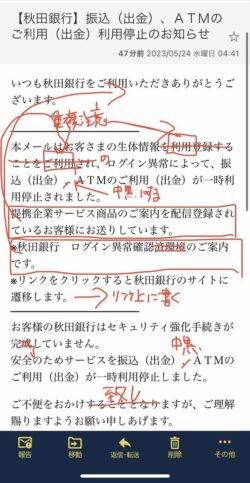 【秋田銀行】振込（出金）、ＡＴＭの
ご利用（出金）利用停止のお知らせ
47分前 2023/05/24 水曜日 04:41
いつも秋田銀行をご利用いただきありがとうございます。
重複注意
本メールはお客さまの生体情報を利用登録する
ことをご利用され、のログイン異常によって、振
込（出金）、ＡＴＭのご利用（出金）が一時利
用停止されました。
中黒にする
提携企業サービス商品のご案内を配信登録され
ているお客様にお送りしています。
※秋田銀行　ログイン異常確認済環境のご案内
です。
※リンクをクリックすると秋田銀行のサイトに
遷移します。
→リンク上に書く
お客様の秋田銀行はセキュリティ強化手続きが
完成していません。
中黒
安全のためサービスを振込（出金）、ＡＴＭの
ご利用（出金）が一時利用停止しました。
ご不便をおかけすることとなりますが、ご理解
賜りますようお願い申しあげます。
報告
移動
返信・転送
削除
その他